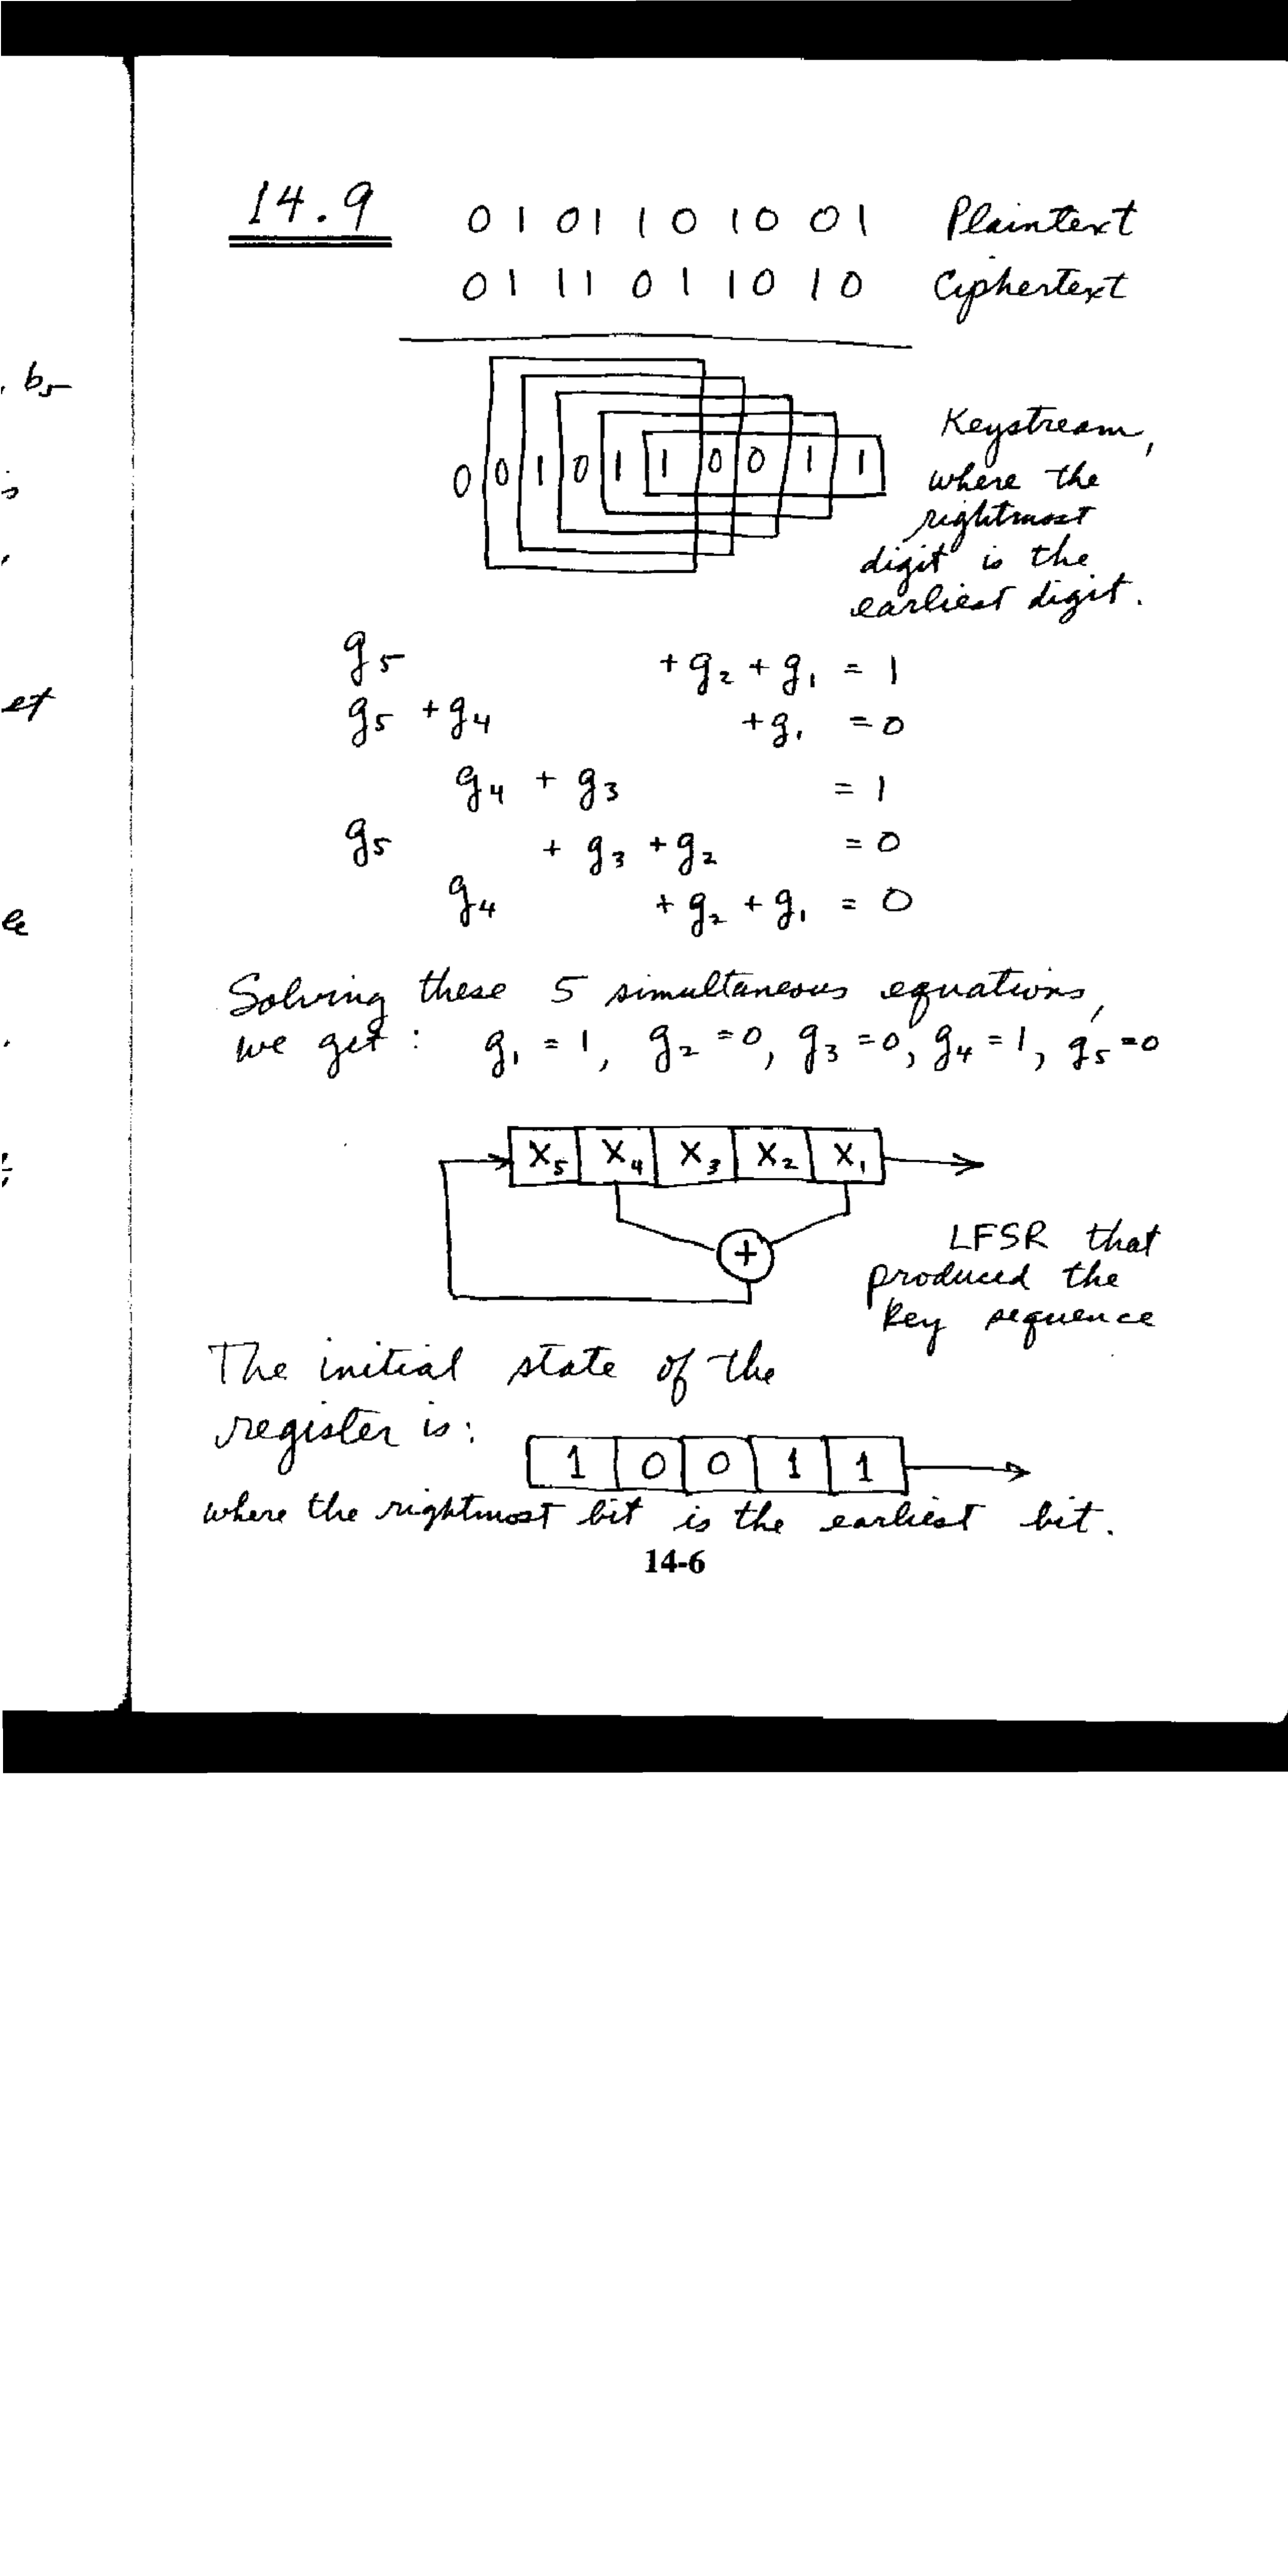 , b5
et
14.9 0 1 0 1 1 0 1 0 0 1 Plaintext
0 1 1 1 0 1 1 0 1 0 Ciphertext
0 0 1 0 1 1 0 0 1 1
Keystream,
where the
rightmost
digit is the
earliest digit.
g5 + g2 + g1 = 1
g5 + g4 + g1 = 0
g4 + g3 = 1
g5 + g3 + g2 = 0
g4 + g2 + g1 = 0
Solving these 5 simultaneous equations,
we get : g1 = 1, g2 = 0, g3 = 0, g4 = 1, g5 = 0
X5 X4 X3 X2 X1
+
LFSR that
produced the
key sequence
The initial state of the
register is:
1 0 0 1 1
where the rightmost bit is the earliest bit.
14-6